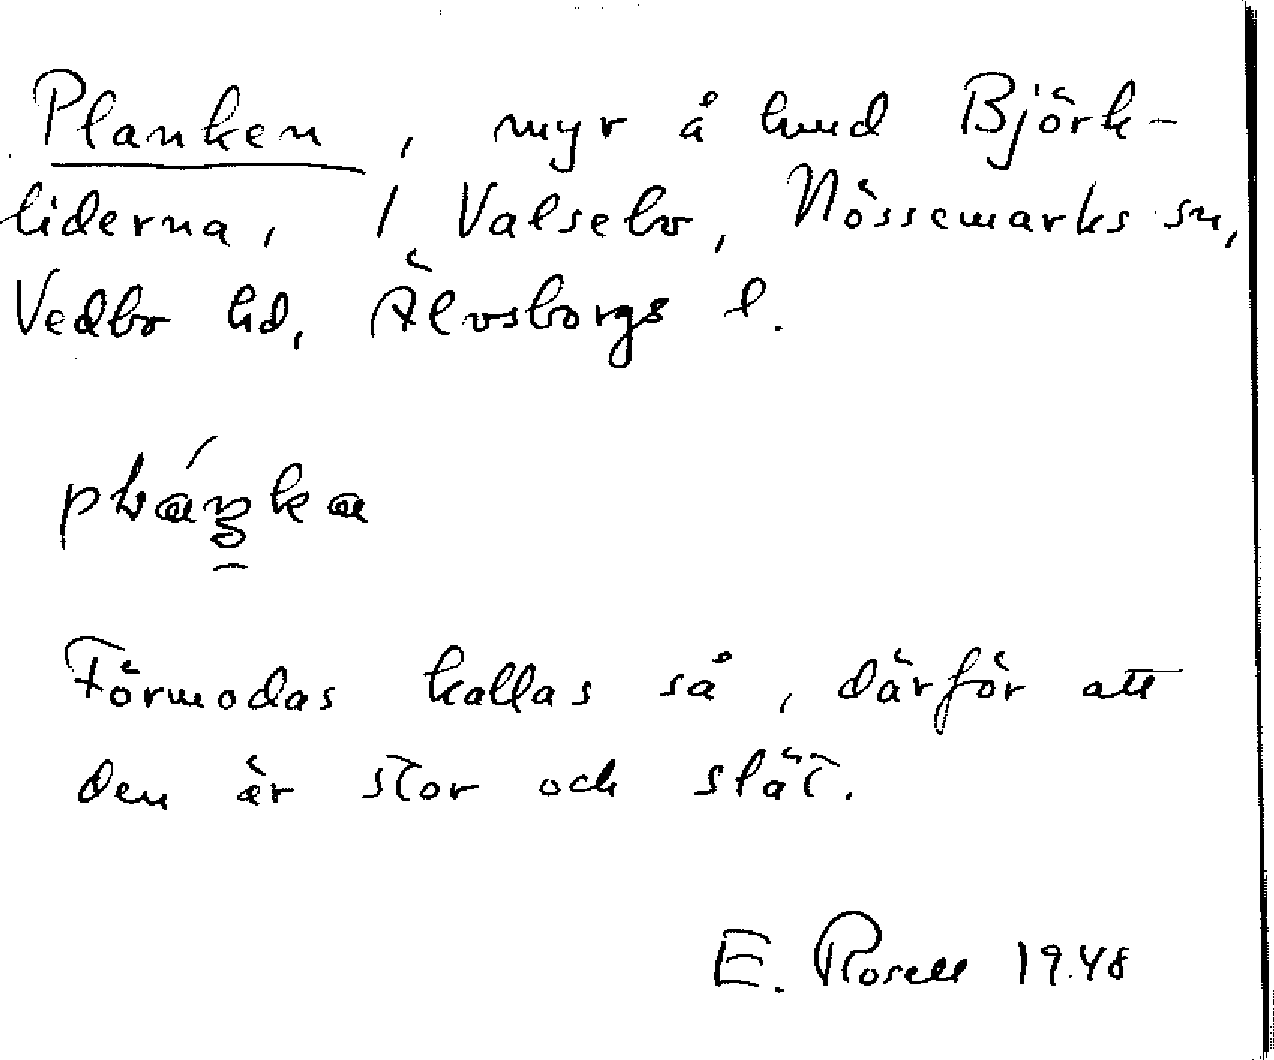 Planken, myr å hmd Björk-
liderna, 1 Valsebo, Nössemarks sn,
Vedbo hd, Älvsborgs l.
Förmodas kallas så, därför att
den är stor och slät.
E. Rosell 1948